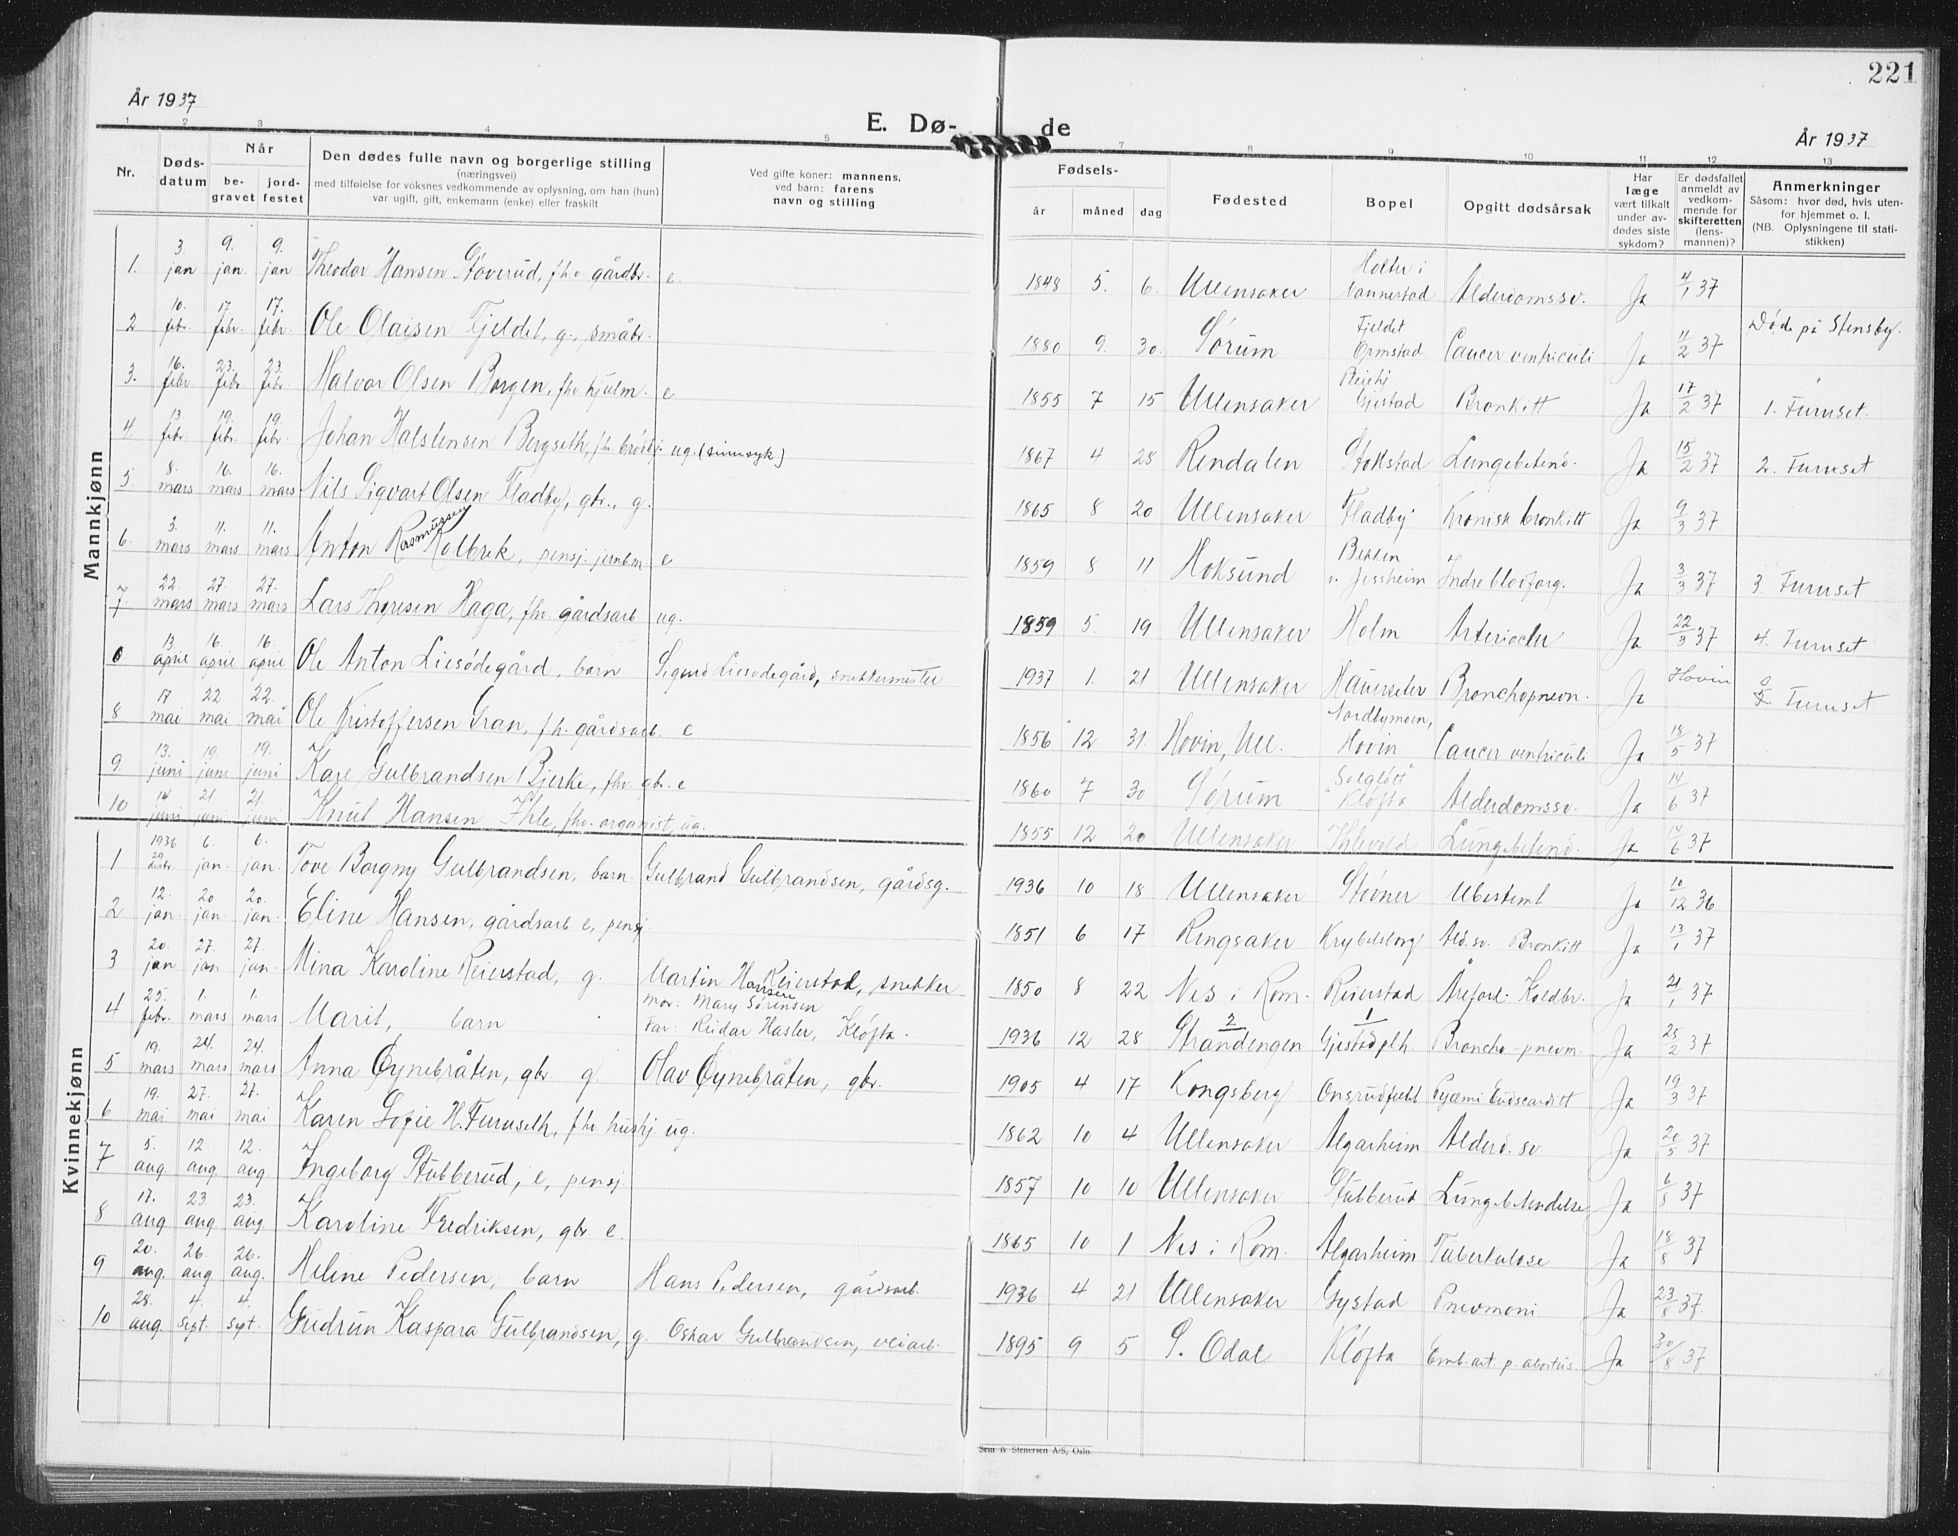 221
År 1937
E. Dø- de
År 1937
1 2 3 4 5 7 8 9 10 11 12 13
Nr.
Døds-
datum
Når
be-
gravet
jord-
festet
Den dødes fulle navn og borgerlige stilling
(næringsvei)
med tilføielse for voksnes vedkommende av oplysning, om han (hun)
var ugift, gift, enkemann (enke) eller fraskilt
Ved gifte koner: mannens,
ved barn: farens
navn og stilling
Fødsels-
år måned dag
Fødested
Bopel
Opgitt dødsårsak
Har
læge
vært tilkalt
under av-
dødes siste
sykdom?
Er dødsfallet
anmeldt av
vedkom-
mende for
skifteretten
(lens-
mannen)?
Anmerkninger
Såsom: hvor død, hvis uten-
for hjemmet o. l.
(NB. Oplysningene til stati-
stikken)
Mannkjønn
1. 3. jan 9. jan. 9. jan Theodor Hansen Støverud, fhv gårdbr. e. 1848 5. 6. Ullensaker Holter i Nannestad Alderdomssv. Ja 4/1 37
2 10. febr. 17. febr. 17. febr. Ole Olaisen Fjeldet, g., småbr. 1880 9. 30. Sørum Fjeldet Ormstad Cancer ventriculi Ja 11/2 37 Døde på Stensby.
3. 16. febr 23. febr 23. febr Halvor Olsen Borgen, fhv hjulm. e 1855 7 15 Ullensaker Pleiehj Gjestad Bronkitt Ja 17/2 37 1. Furuset.
4. 13. febr 19. febr. 19. febr. Johan Halstensen Bergseth, ug. (sinnsyk) 1867 4 28 Rendalen Stokstad Lungebetend. Ja 15/2 37 2. Furuset
5. 8. mars 16. mars 16. mars Nils Sigvart Olsen Fladby, gbr., g. 1865 8 20 Ullensaker Fladby Kronisk bronkitt Ja 9/3 37
6. 3. mars 11. mars 11. mars Anton Rasmussen Kolbrek, pensj. jernbm. e 1859 8 11 Hoksund Bekken v. Jessheim Indre blodforg. Ja 3/3 37 3. Furuset
7. 22. mars 27. mars 27. mars Lars Thoresen Haga, fhv. gårdsarb ug. 1859 5. 19 Ullensaker Holm Arterioscler Ja 22/3 37 4. Furuset
0 13. april 16. april 16. april Ole Anton Liesødegård, barn Sigurd Liesødegård, snekkermester 1937 1. 21 Ullensaker Hauerseter Bronchopneon. Ja Hovin Furuset
8 17 mai 22. mai 22. mai Ole Kristoffersen Gran, fh. gårdsarb. e 1856 12 31. Hovin, Ull. Nordbymoen, Hovin Cancer ventriculi Ja 18/5 37
9. 13. juni 19. juni 19. juni Kare Gulbrandsen Bjerke, fhv gbr. e 1860 7 30 Sørum Solgløtt Kløfta Alderdomssv. Ja 14/6 37
10 14 juni 21. juni 21. juni Knut Hansen Ihle, fhv. organist, ug. 1855 12 20 Ullensaker Ihlevold Lungebetend. Ja 14/6 37
Kvinnekjønn
1 1936 6. jan. 6. jan. Tove Borgny Gulbrandsen, barn. Gulbrand Gulbrandsen, gårdsg. 1936 10 18 Ullensaker Støvner Ubestemt Ja 10/12 36
2 12. jan. 20 jan. 20. jan. Eline Hansen, gårdsarb e, pensj 1851 6 17 Ringsaker Krybelstorg Ald.sv. Bronkitt Ja 13/1 37
3 20. jan 27. jan 27. jan. Mina Karoline Reierstad, g. Martin Hansen Reierstad, snekker 1850 8 22 Nes i Rom. Reierstad Åreforl. Koldbr. Ja 21/1 37
4 25. febr. 1. mars 1. mars Marit, barn mor: Mary Sørensen Far: Reidar Hasler, Kløfta. 1936 12 28 2 Strandengen 1 Gjestadplh. Broncho-pneum. Ja 25/2 37
5 19. mars 24. mars 24. mars Anna Øynebråten, gbr g. Olav Øynebråten, gbr. 1905 4 17 Kongsberg Onsrudfeltet Pyæmi Endocarditt Ja 19/3 37
6 19. mai 27. mai 27. mai Karen Sofie H. Furuseth, fhv hushj. ug. 1862 10. 4 Ullensaker Algarheim Alderd. sv. Ja 20/5 37
7 5. aug. 12 aug. 12. aug. Ingeborg Stubberud, e, pensj. 1857 10 10 Ullensaker Stubberud Lungebetendelse Ja 6/8 37
8 17. aug 23. aug 23. aug Karoline Fredriksen, gbr e. 1865 10 1 Nes i Rom. Algarheim Tuberkulose Ja 18/8 37
9 20. aug. 26. aug 26. aug. Helene Pedersen, barn Hans Pedersen, gårdsarb. 1936 4 21 Ullensaker Gystad Pneumoni Ja 23/8 37.
10 28. aug. 4. sept. 4. sept. Gudrun Kaspara Gulbrandsen, g. Oskar Gulbrandsen, veiarb. 1895 9 5 S. Odal Kløfta Emb. art. p. abortus. Ja 30/8 37
Sem & Stenersen A/S, Oslo.